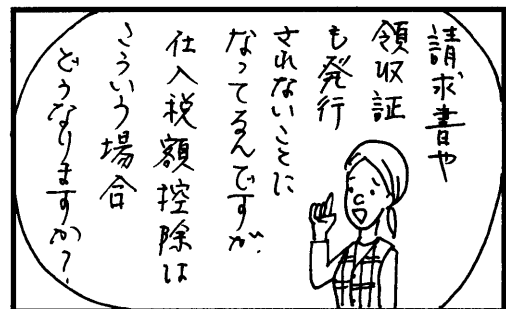 請求書や
領収証
も発行
されないことに
なってるんですが、
仕入税額控除は
そういう場合
どうなりますか?